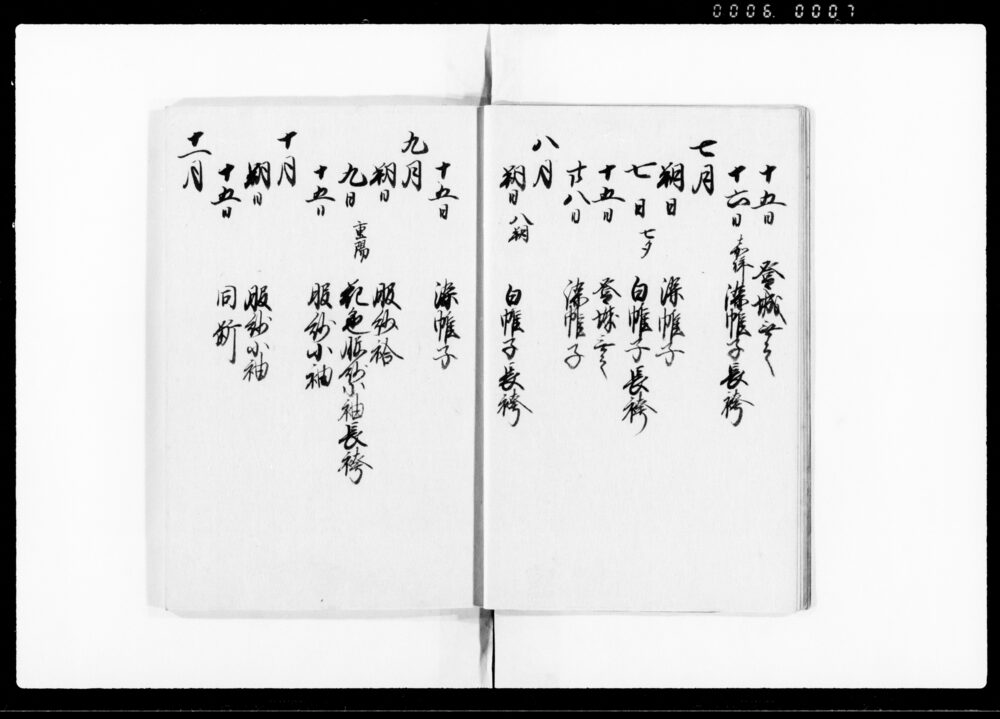 0006 0007
十五日 登城無之
十六日 嘉祥 染帷子長袴
七月
朔日 染帷子
七日 七夕 白帷子長袴
十五日 登城無之
廿八日 染帷子
八月
朔日 八朔 白帷子長袴
十五日 染帷子
九月
朔日 服紗袷
九日 重陽 花色服紗小袖長袴
十五日 服紗小袖
十月
朔日 服紗小袖
十五日 同断
十一月